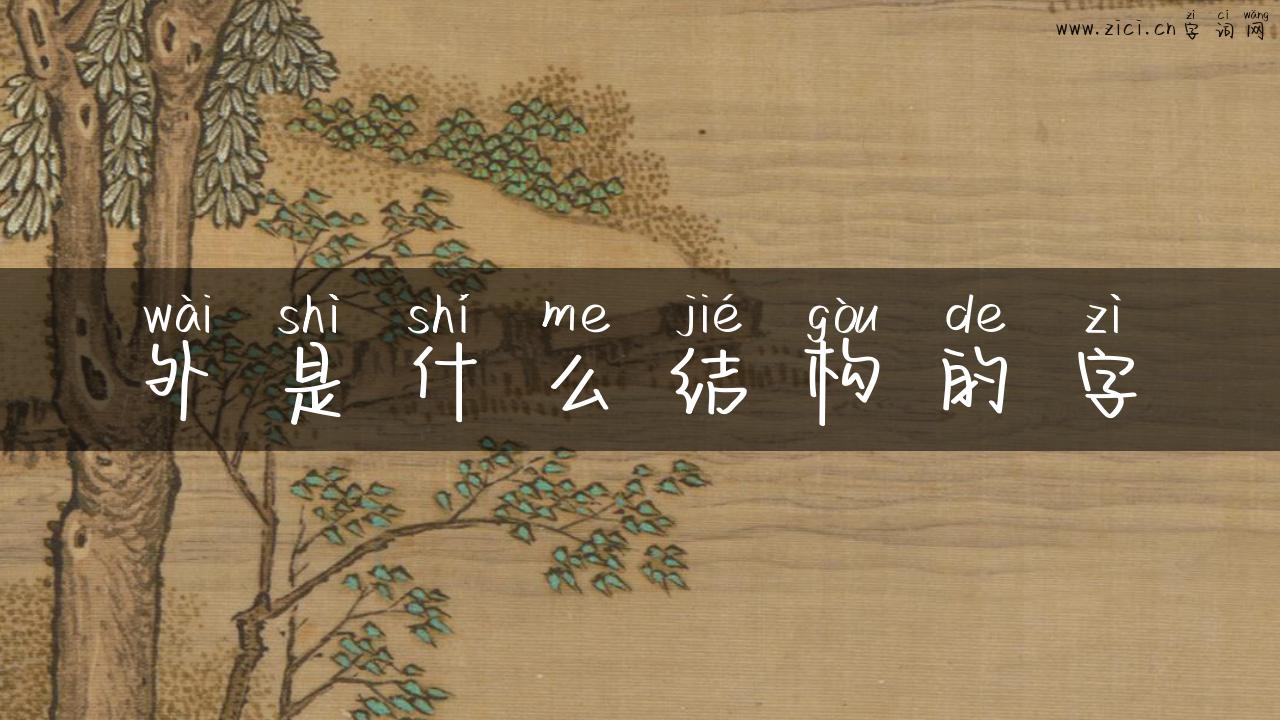 zì cí wǎng
www.zici.cn 字 词 网
wài shì shí me jié gòu de zì
外 是 什 么 结 构 的 字